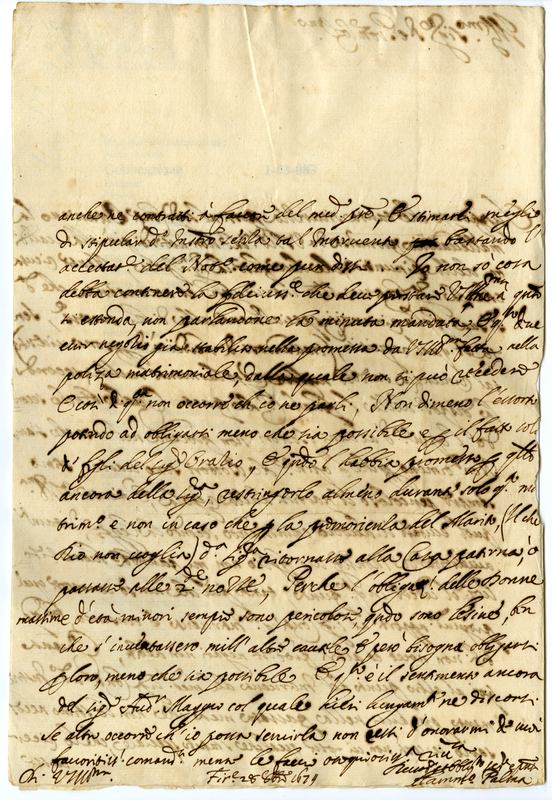 anche ne contratti à favore del med.º prõ, e stimarei meglio
di stipular d.º Instro senza tal Intervento bastando l'
accettat.e del Not.º come pur dissi Io non so cosa
debba contenere la fideiuss.e che deve prestare VSIllma a quanto
si estenda, non parlandone la minuta mandata, e q.to deve
esser negozio già stabilito nella promessa da VSIll.ma fatta nella
poliza matrimoniale, dalla quale non si può recedere
e così di q.ta non occorre ch'io ne parli, Non dimeno l'esorto
potendo ad obligarsi meno che sia possibile e il fatto
figli del Sig.r Orazio, e q.ndo l'habbia promesso
ancora della Sig.ra, restringerlo almeno durante solo q.o ma
trim.º e non in caso che p la premorienza del Marito, (il che
Dio non voglia) d.a Sig.ra ritornasse alla Casa paterna, ò
passasse alle 2.de nozze, Perche l'oblig.ni delle Donne
massime d'età minori sempre sono pericolose, q.ndo sono lesive, ben
che s'inventassero mill'altre cautele e però bisogna obligarsi
p loro, meno che sia possibile E q.to è il sentimento ancora
del Sig.r Aud.r Maggio col quale hieri lungam.te ne discorsi
Se altro occorre ch'io possa servirla non resti d'onorarmi de suoi
favoritiss.i comand.i mentre le faccio ossequiosiss.a riv.za
Di VSIll.ma Fir.e 28 1679